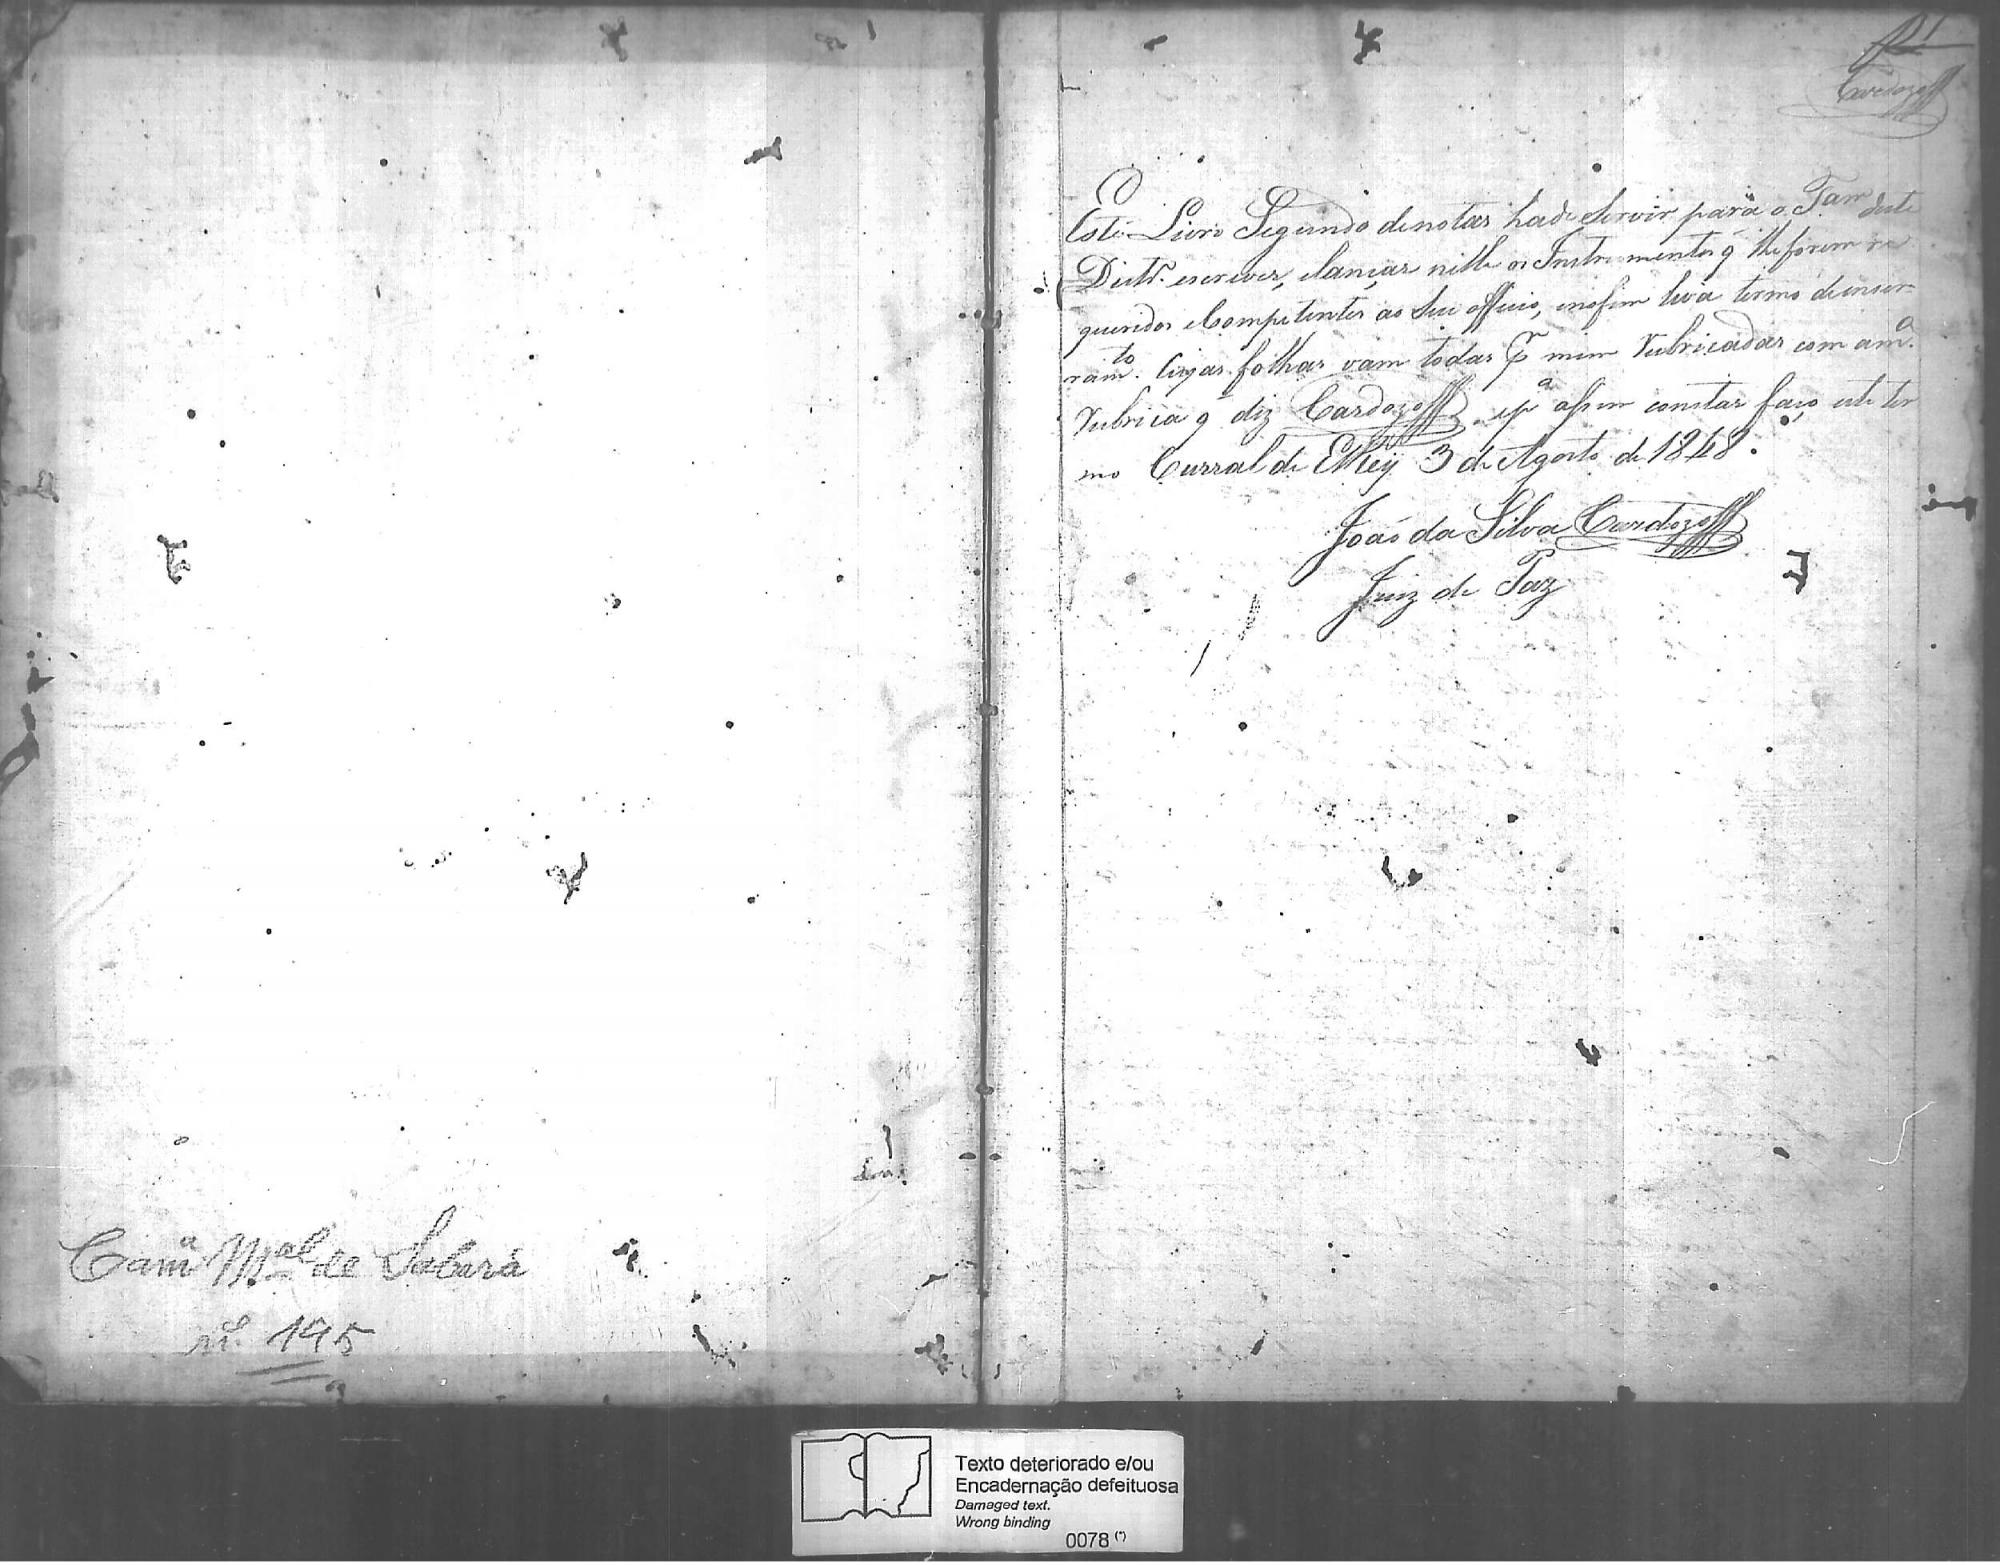 Camª Mᵃˡ de Sabará
nº 195
1
Cardozo
Este Livro Segundo denotas hade Servir para o Tam deste
Distrº escrever, elançar nelle os Instrumentos q̃ lhe forem re
queridos eCompetentes ao Seu officio, enofim leva termo deincer
ramᵗᵒ. Cujas folhas vam todas pʳ mim Rubricadas com amª
Rubrica q̃ diz Cardozo epª assim constar faço este ter
mo Curral de ElRey 3 de Agosto de 1848.
João da Silva Cardozo
Juiz de Paz
Texto deteriorado e/ou
Encadernação defeituosa
Damaged text.
Wrong binding
0078 (*)